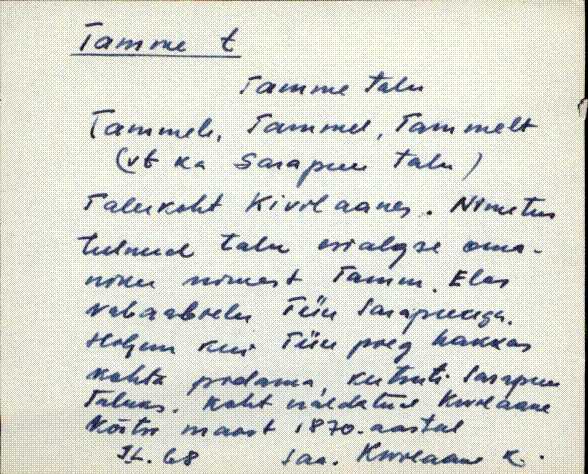 Tamme t
Tamme talu
Tammele, Tammel, Tammelt
(vt ka Sarapuu talu)
Talukoht Kivilaanes. Nimetus
tulnud talu esialgse oma-
niku nimest Tamm. Elas
vabaabielu Tiiu Sarapuuga.
Hiljem kui Tiiu poeg hakkas
kohta pidama, kutsuti Sarapuu
taluks. Koht eraldatud Kivilaane
kõrtsi maast 1870. aastal
68 Saa. Kivilaane k.